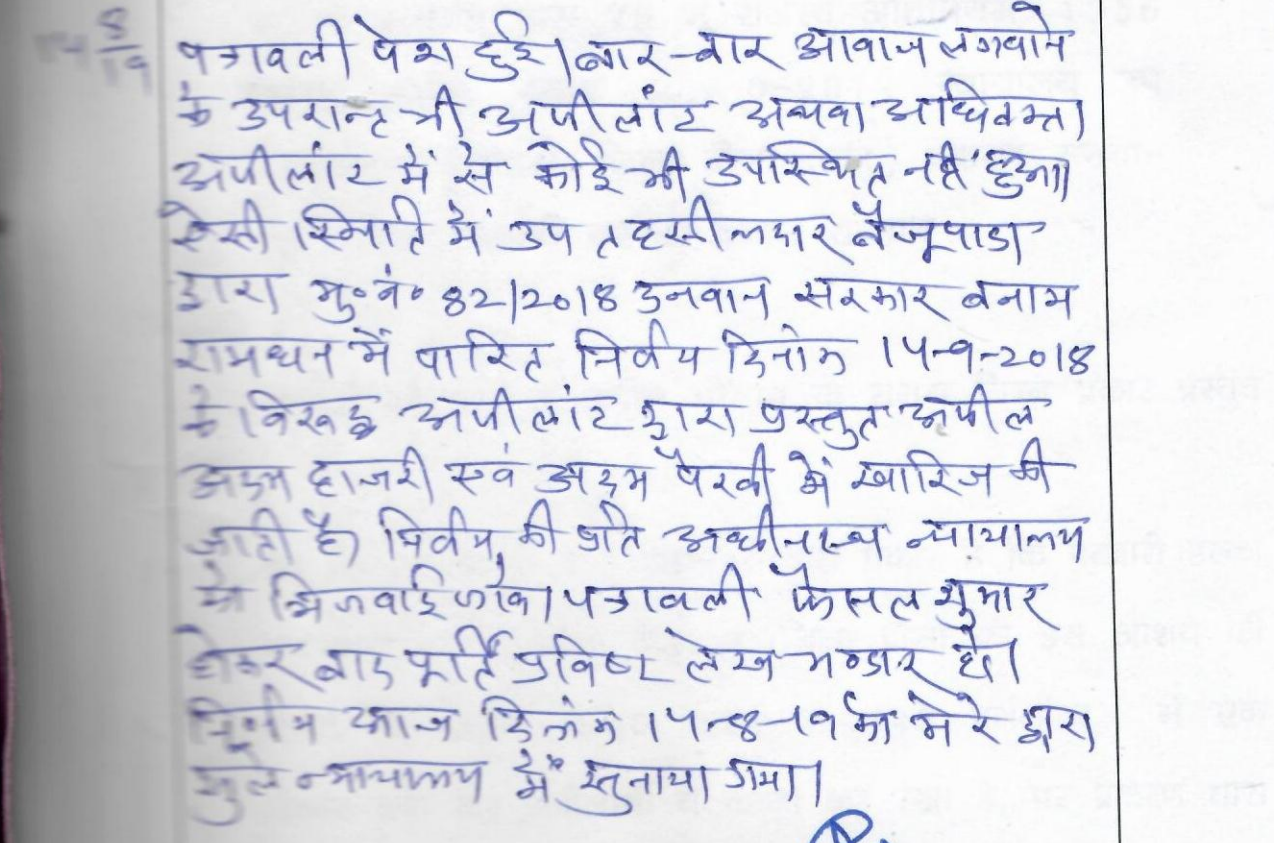 14 8/19
पत्रावली पेश हुई। बार-बार आवाज लगवाने
के उपरान्त भी अपीलांट अथवा अधिवक्ता
अपीलांट में से कोई भी उपस्थित नहीं हुआ।
ऐसी स्थिति में उप तहसीलदार बैजूपाडा
द्वारा मु०नं० 82/2018 उनवान सरकार बनाम
रामधन में पारित निर्णय दिनांक 14-9-2018
के विरूद्ध अपीलांट द्वारा प्रस्तुत अपील
अदम हाजरी एवं अदम पैरवी में खारिज की
जाती है। निर्णय की प्रति अधीनस्थ न्यायालय
को भिजवाई जावे। पत्रावली फैसल शुमार
होकर बाद पूर्ति प्रविष्ट लेख भण्डार हो।
निर्णय आज दिनांक 14-8-19 को मेरे द्वारा
खुले न्यायालय में सुनाया गया।